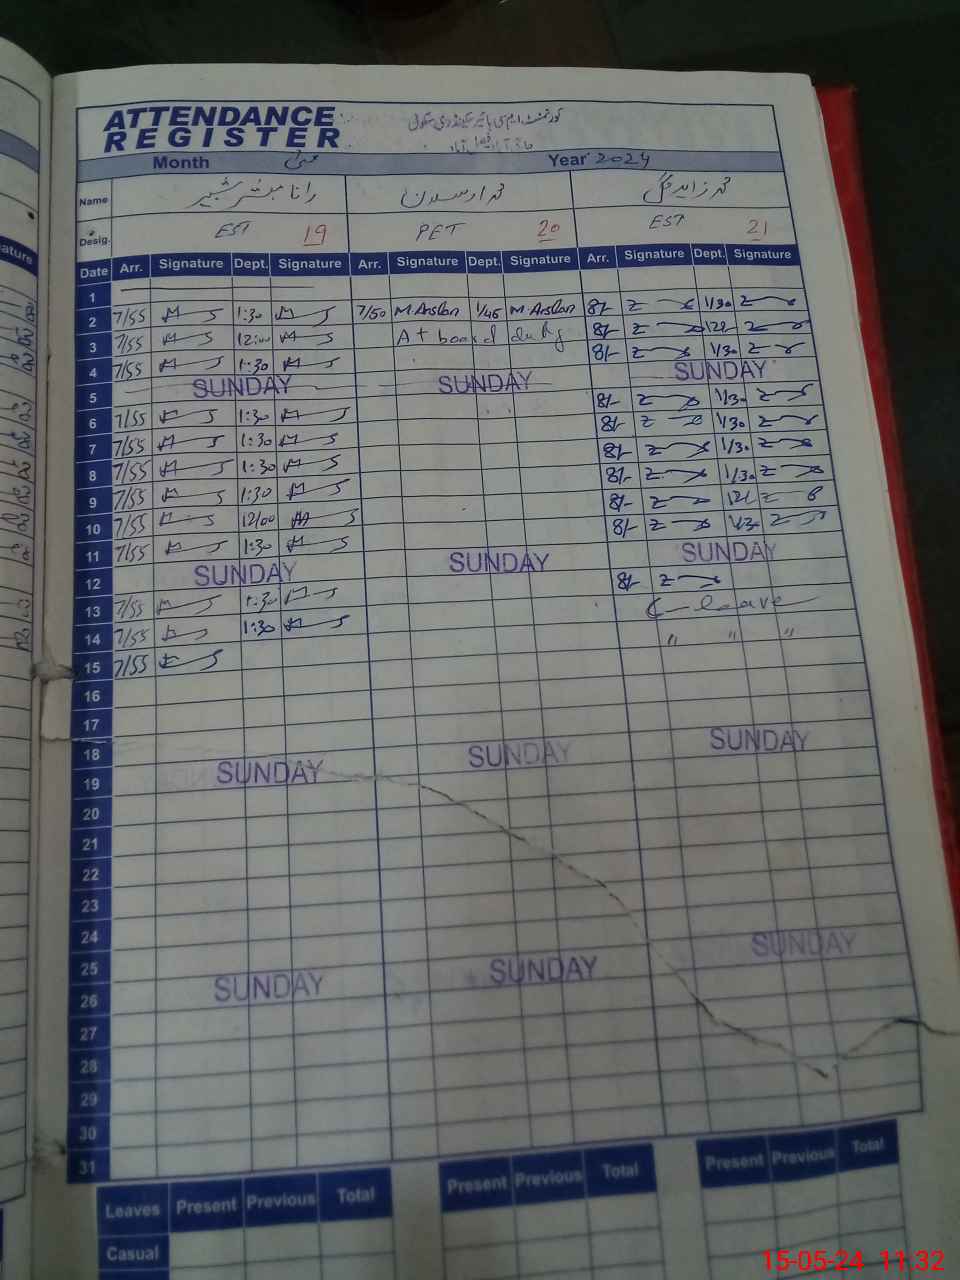 ATTENDANCE
REGISTER
گورنمنٹ ایم سی ہائیر سیکنڈری سکول
Month مئی Year 2024
Name رانا مبشر شبیر محمد ارسلان محمد زاہد
Desig. EST 19 PET 20 EST 21
Date Arr. Signature Dept. Signature Arr. Signature Dept. Signature Arr. Signature Dept. Signature
1
2 7/55 1:30 7/50 M.Arslan 1/45 M.Arslan 8/- 1/30
3 7/55 12:00 At board duty 8/- 12/-
4 7/55 1:30 8/- 1/30
5 SUNDAY SUNDAY SUNDAY
6 7/55 1:30 8/- 1/30
7 7/55 1:30 8/- 1/30
8 7/55 1:30 8/- 1/30
9 7/55 1:30 8/- 1/30
10 7/55 12/00 8/- 12/-
11 7/55 1:30 8/- 1/30
12 SUNDAY SUNDAY SUNDAY
13 7/55 1:30 8/-
14 7/55 1:30 C-leave
15 7/55 " " "
16
17
18
19 SUNDAY SUNDAY SUNDAY
20
21
22
23
24
25
26 SUNDAY SUNDAY SUNDAY
27
28
29
30
31
Leaves Present Previous Total Present Previous Total Present Previous Total
Casual
15-05-24 11:32